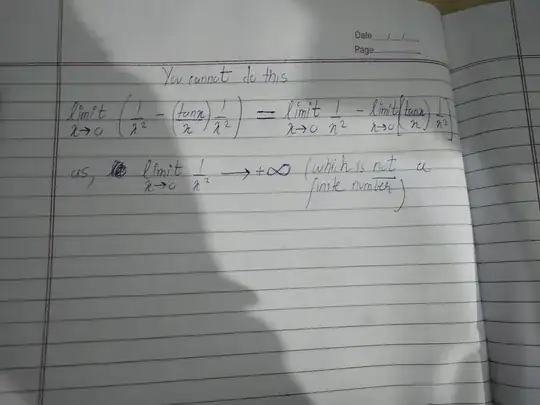 Date __/__/__
Page
You cannot do this
limit x→0 ( 1/x² - (tanx/x) 1/x² ) = limit x→0 1/x² - limit x→0 [(tanx/x) 1/x²]
as, limit x→0 1/x² → +∞ (which is not a
finite number)